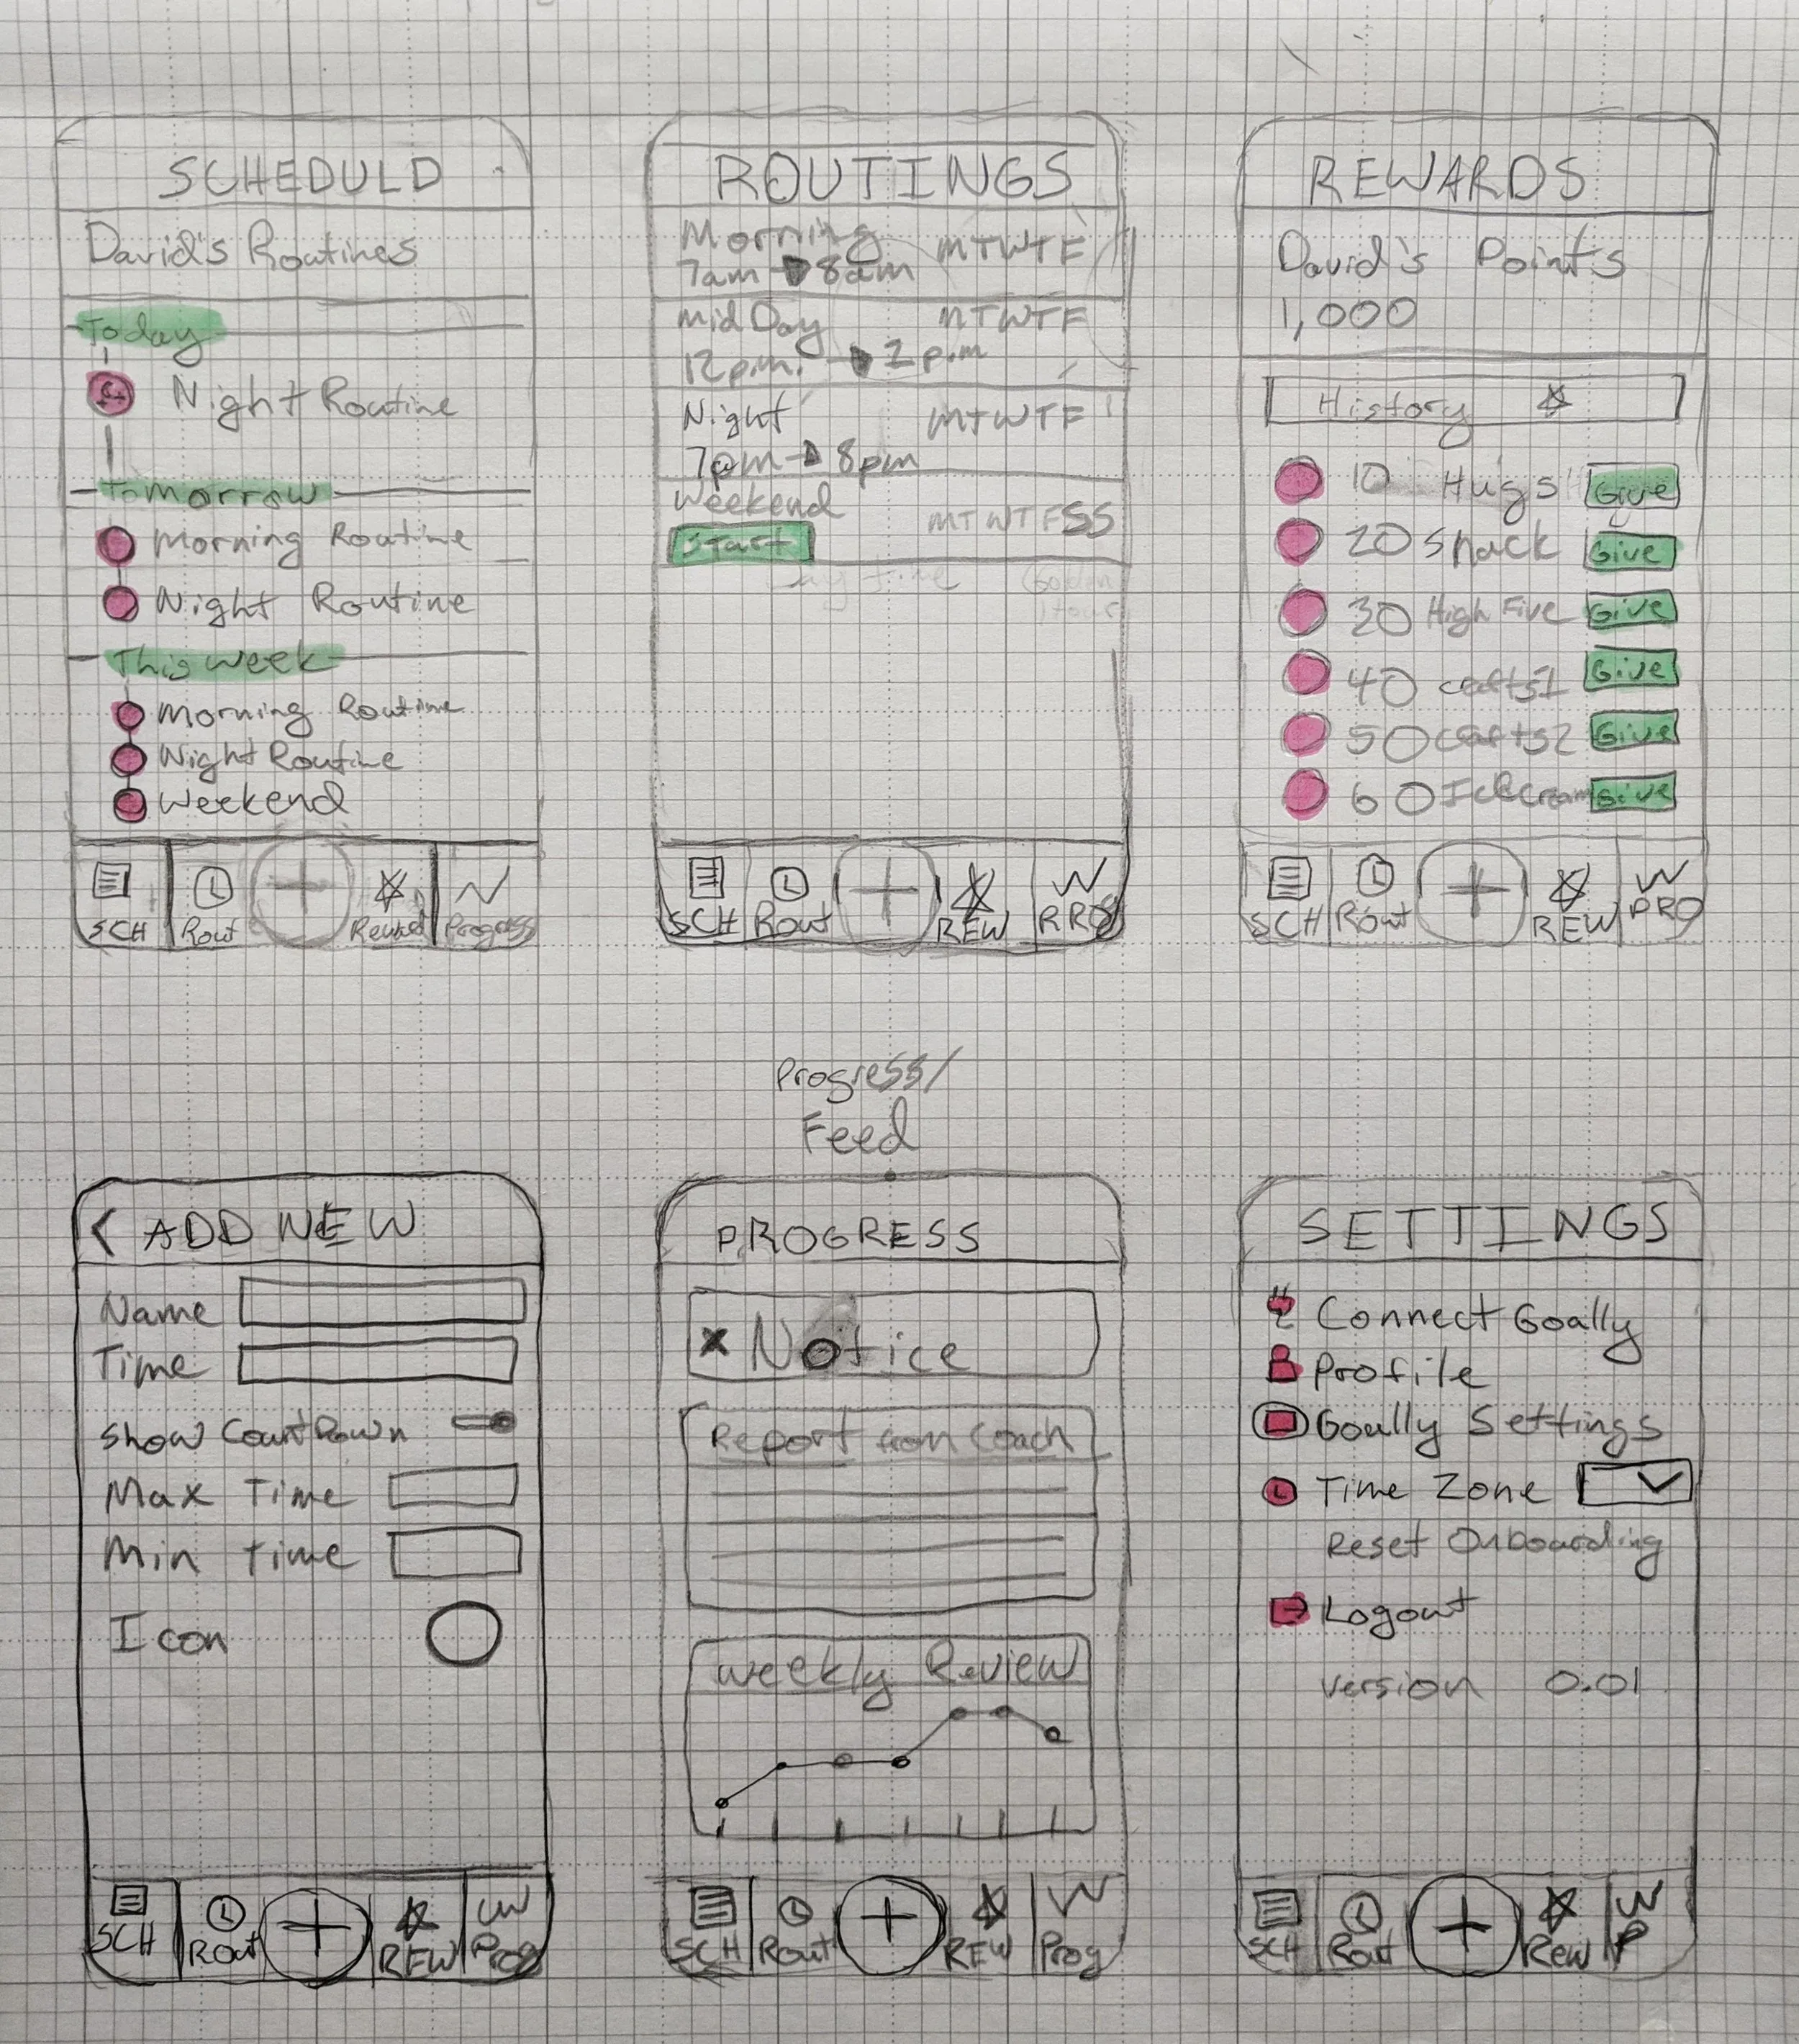 SCHEDULD
David's Routines
Today
Night Routine
Tomorrow
Morning Routine
Night Routine
This week
Morning Routine
Night Routine
Weekend
SCH Rout Reward Progress
ROUTINGS
Morning MTWTF
7am 8am
mid Day MTWTF
12 p.m. 2 p.m
Night MTWTF
7pm 8pm
Weekend MTWTFSS
Start
SCH Rout REW PRO
REWARDS
David's Points
1,000
History
10 Hugs Give
20 snack Give
30 High Five Give
40 crafts1 Give
50 crafts2 Give
60 Give
SCH Rout REW PRO
ADD NEW
Name
Time
Show CountDown
Max Time
Min Time
Icon
SCH ROut REW Prog
Progress/
Feed
PROGRESS
x Notice
Report from Coach
weekly Review
SCH Rout REW Prog
SETTINGS
Connect Goally
Profile
Goally Settings
Time Zone
Reset Onboarding
Logout
version 0.01
SCH Rout Rew P